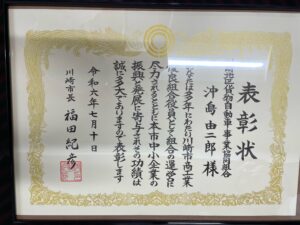 表彰状
地区貨物自動車事業協同組合
沖島由二郎様
あなたは多年にわたり川崎市商工業
優良組合役員として組合の運営に
尽力されるとともに本市中小企業の
振興と発展に寄与されその功績は
誠に多大でありますので表彰します
令和六年七月十日
川崎市長 福田紀彦